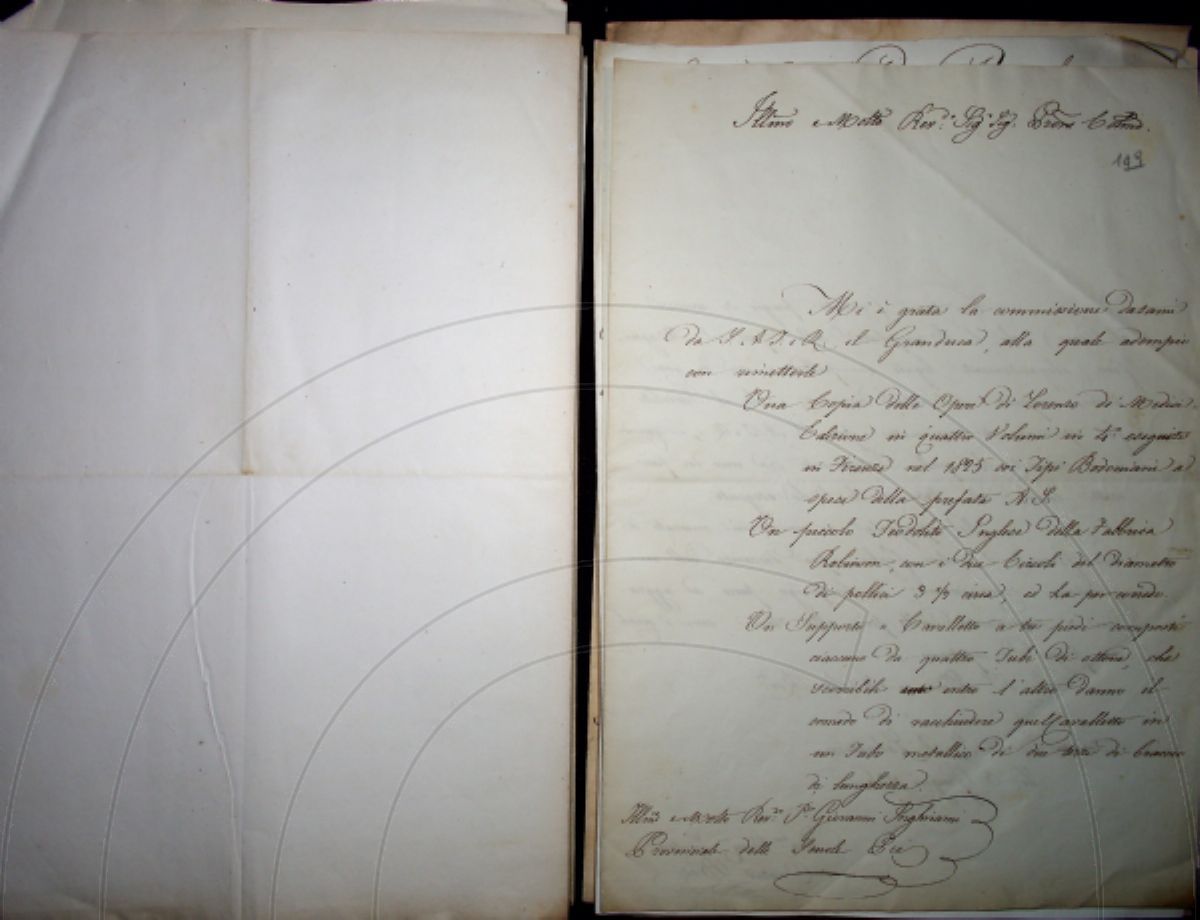 Illmo e Molto Rev.º Sig.r Sig. Prone Colmo.
149
Mi è grata la commissione datami
da S. A. I. e R. il Granduca, alla quale adempio
con rimetterle
Una Copia delle Opere di Lorenzo de Medici
Edizione in quattro Volumi in 4º eseguita
in Firenze nel 1825 coi Tipi Bodoniani a
spese della prefata A. S.
Un piccolo Teodolito Inglese della Fabbrica
Robinson, con i due Circoli del diametro
di pollici 3 1/2 circa, ed ha per corredo
Un Supporto o Cavalletto a tre piedi composti
ciascuno da quattro Tubi di ottone, che
scorribili entro l'altro danno il
comodo di racchiudere quel Cavalletto in
un Tubo metallico di due terzi di braccio
di lunghezza.
Illmo e Molto Rev.do P.re Giovanni Inghirami
Provinciale delle Scuole Pie